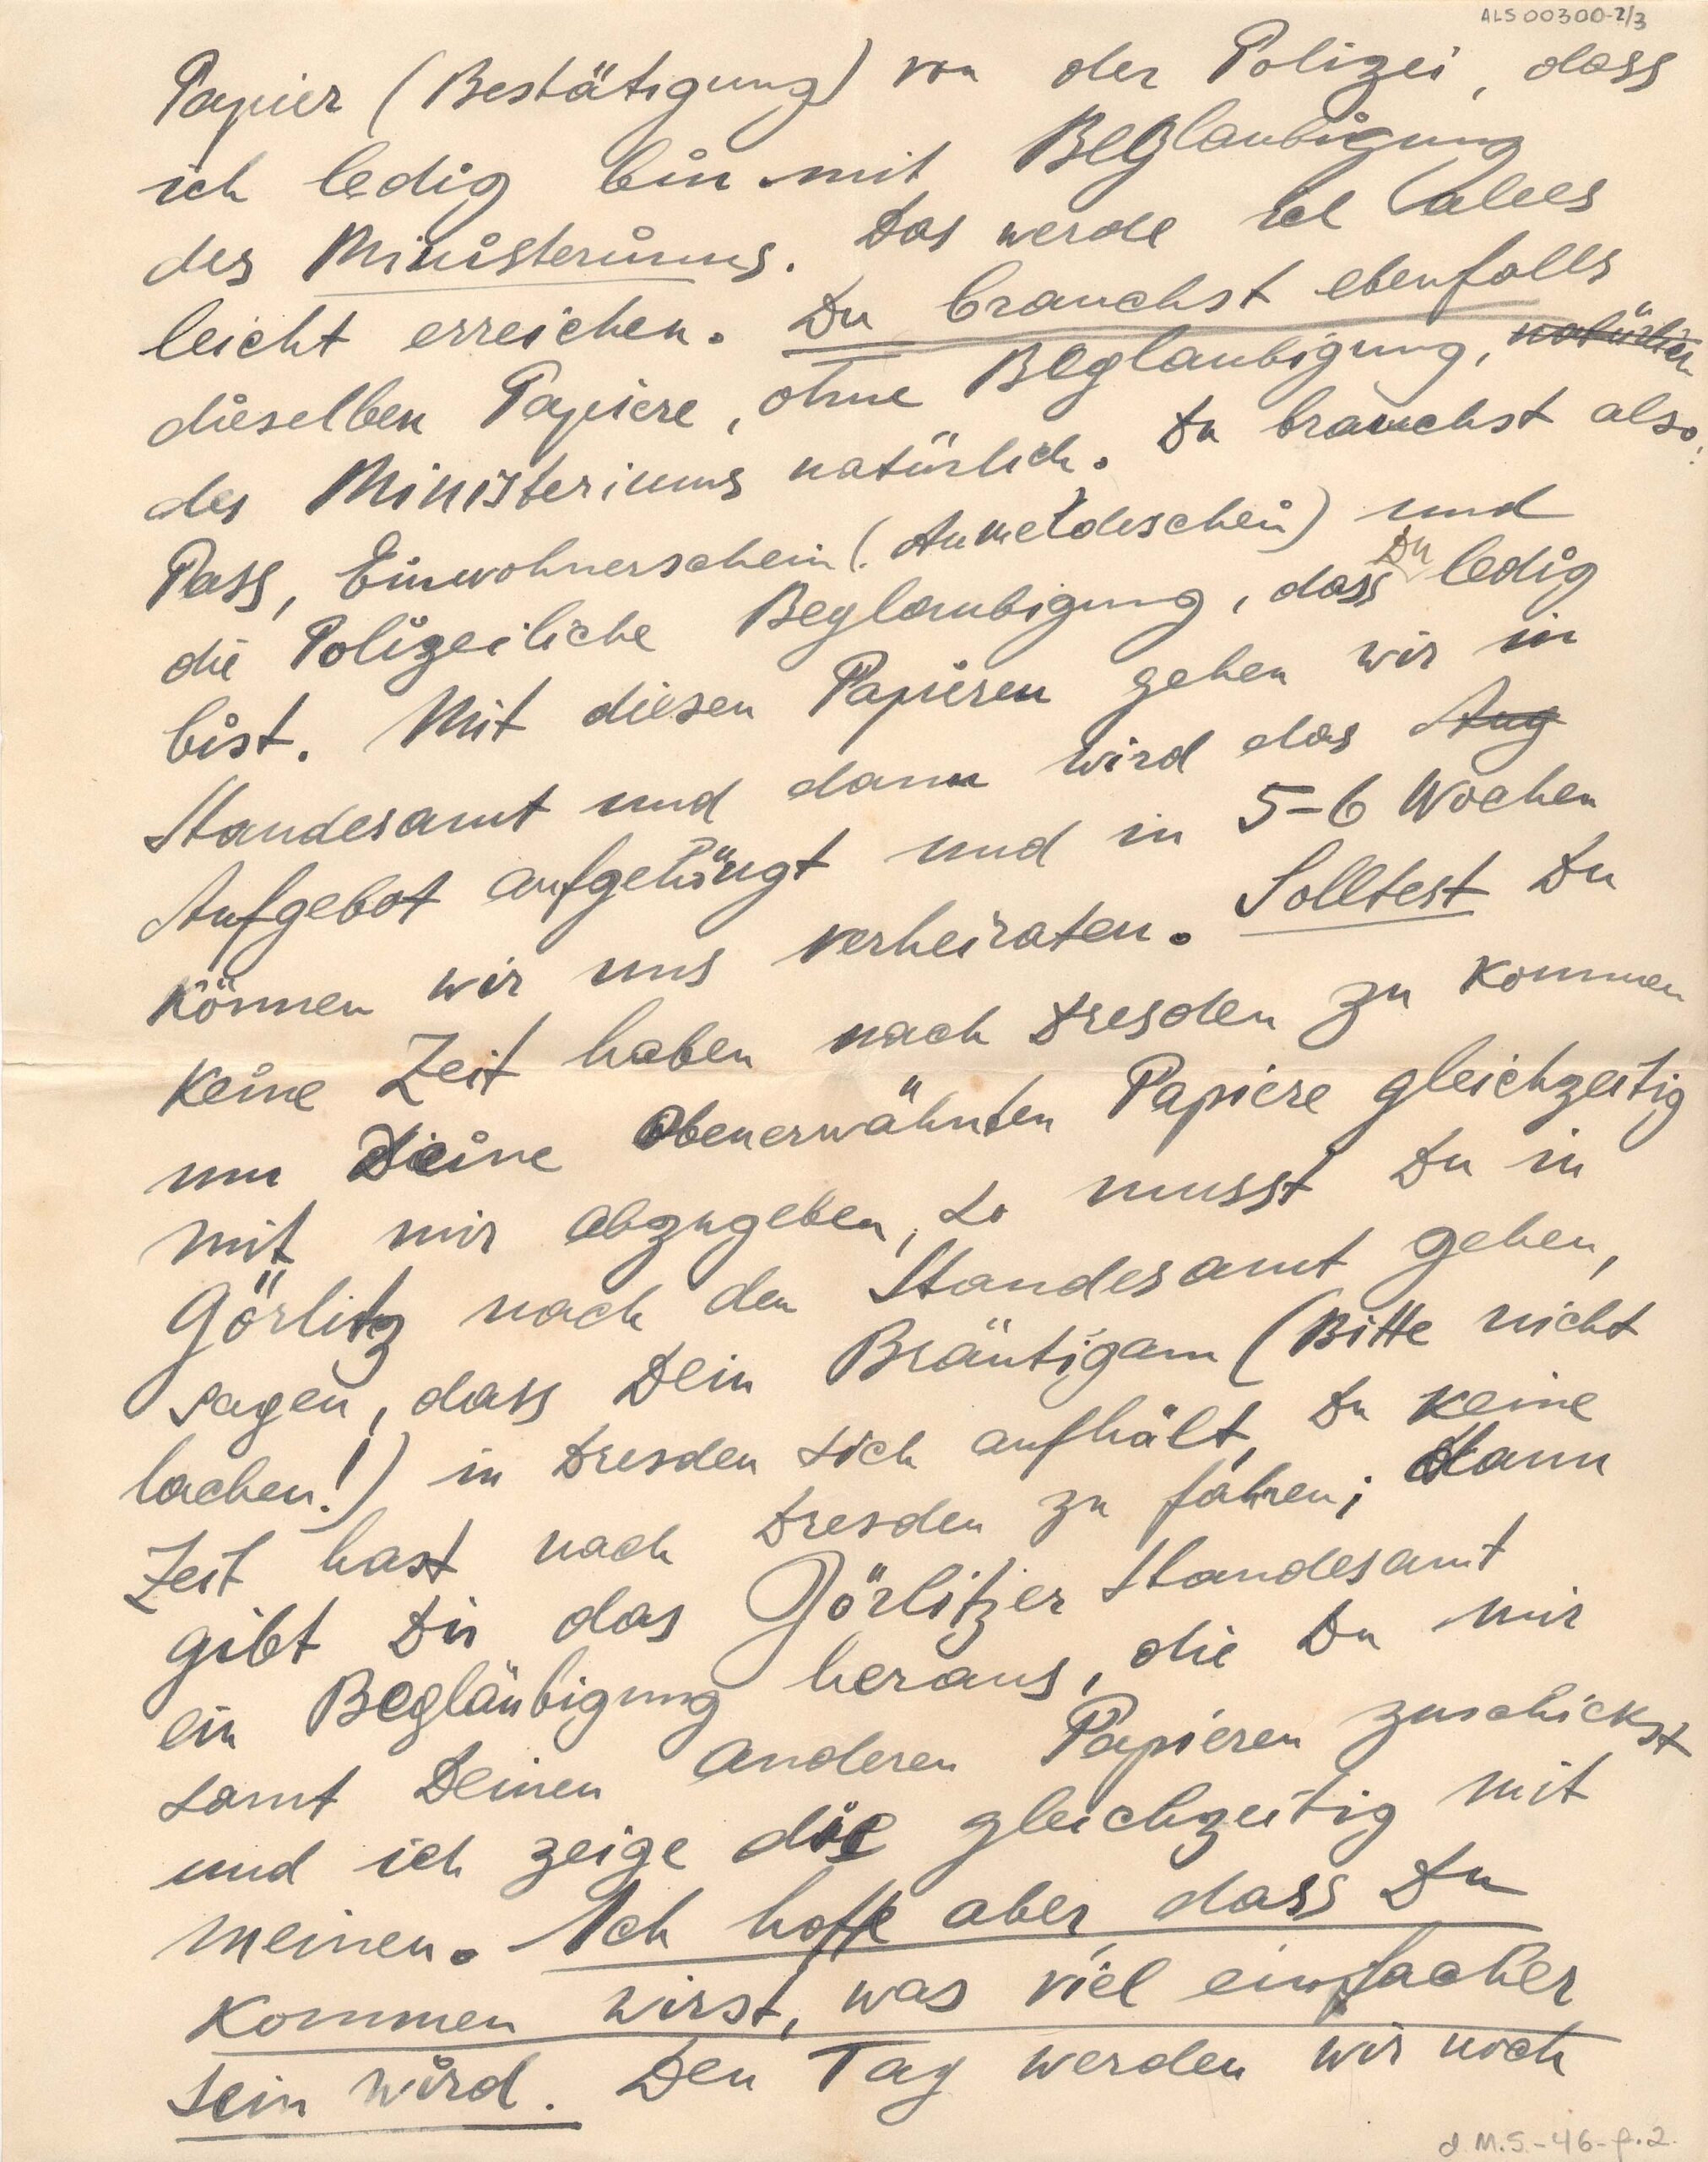 ALS 00300-2/3
Papier (Bestätigung) von der Polizei, dass
ich ledig bin mit Beglaubigung
des Ministeriums. Das werde ich alles
leicht erreichen. Du brauchst ebenfalls
dieselben Papiere, ohne Beglaubigung, natürlich
des Ministeriums natürlich. Du brauchst also:
Pass, Einwohnerschein (Anmeldeschein) und
die Polizeiliche Beglaubigung, dass Du ledig
bist. Mit diesen Papieren gehen wir in
Standesamt und dann wird das Aug
Aufgebot aufgehängt und in 5-6 Wochen
können wir uns verheiraten. Solltest Du
keine Zeit haben nach Dresden zu kommen
um Deine obenerwähnten Papiere gleichzeitig
mit mir abzugeben, so musst Du in
Görlitz nach den Standesamt gehen,
sagen, dass Dein Bräutigam (Bitte nicht
lachen!) in Dresden sich aufhält, Du keine
Zeit hast nach Dresden zu fahren; dann
gibt Dir das Görlitzer Standesamt
ein Begläubigung heraus, die Du mir
samt Deinen anderen Papieren zuschickst
und ich zeige die gleichzeitig mit
meinen. Ich hoffe aber dass Du
kommen wirst, was viel einfacher
sein wird. Den Tag werden wir noch
d M.S.-46-p.2.